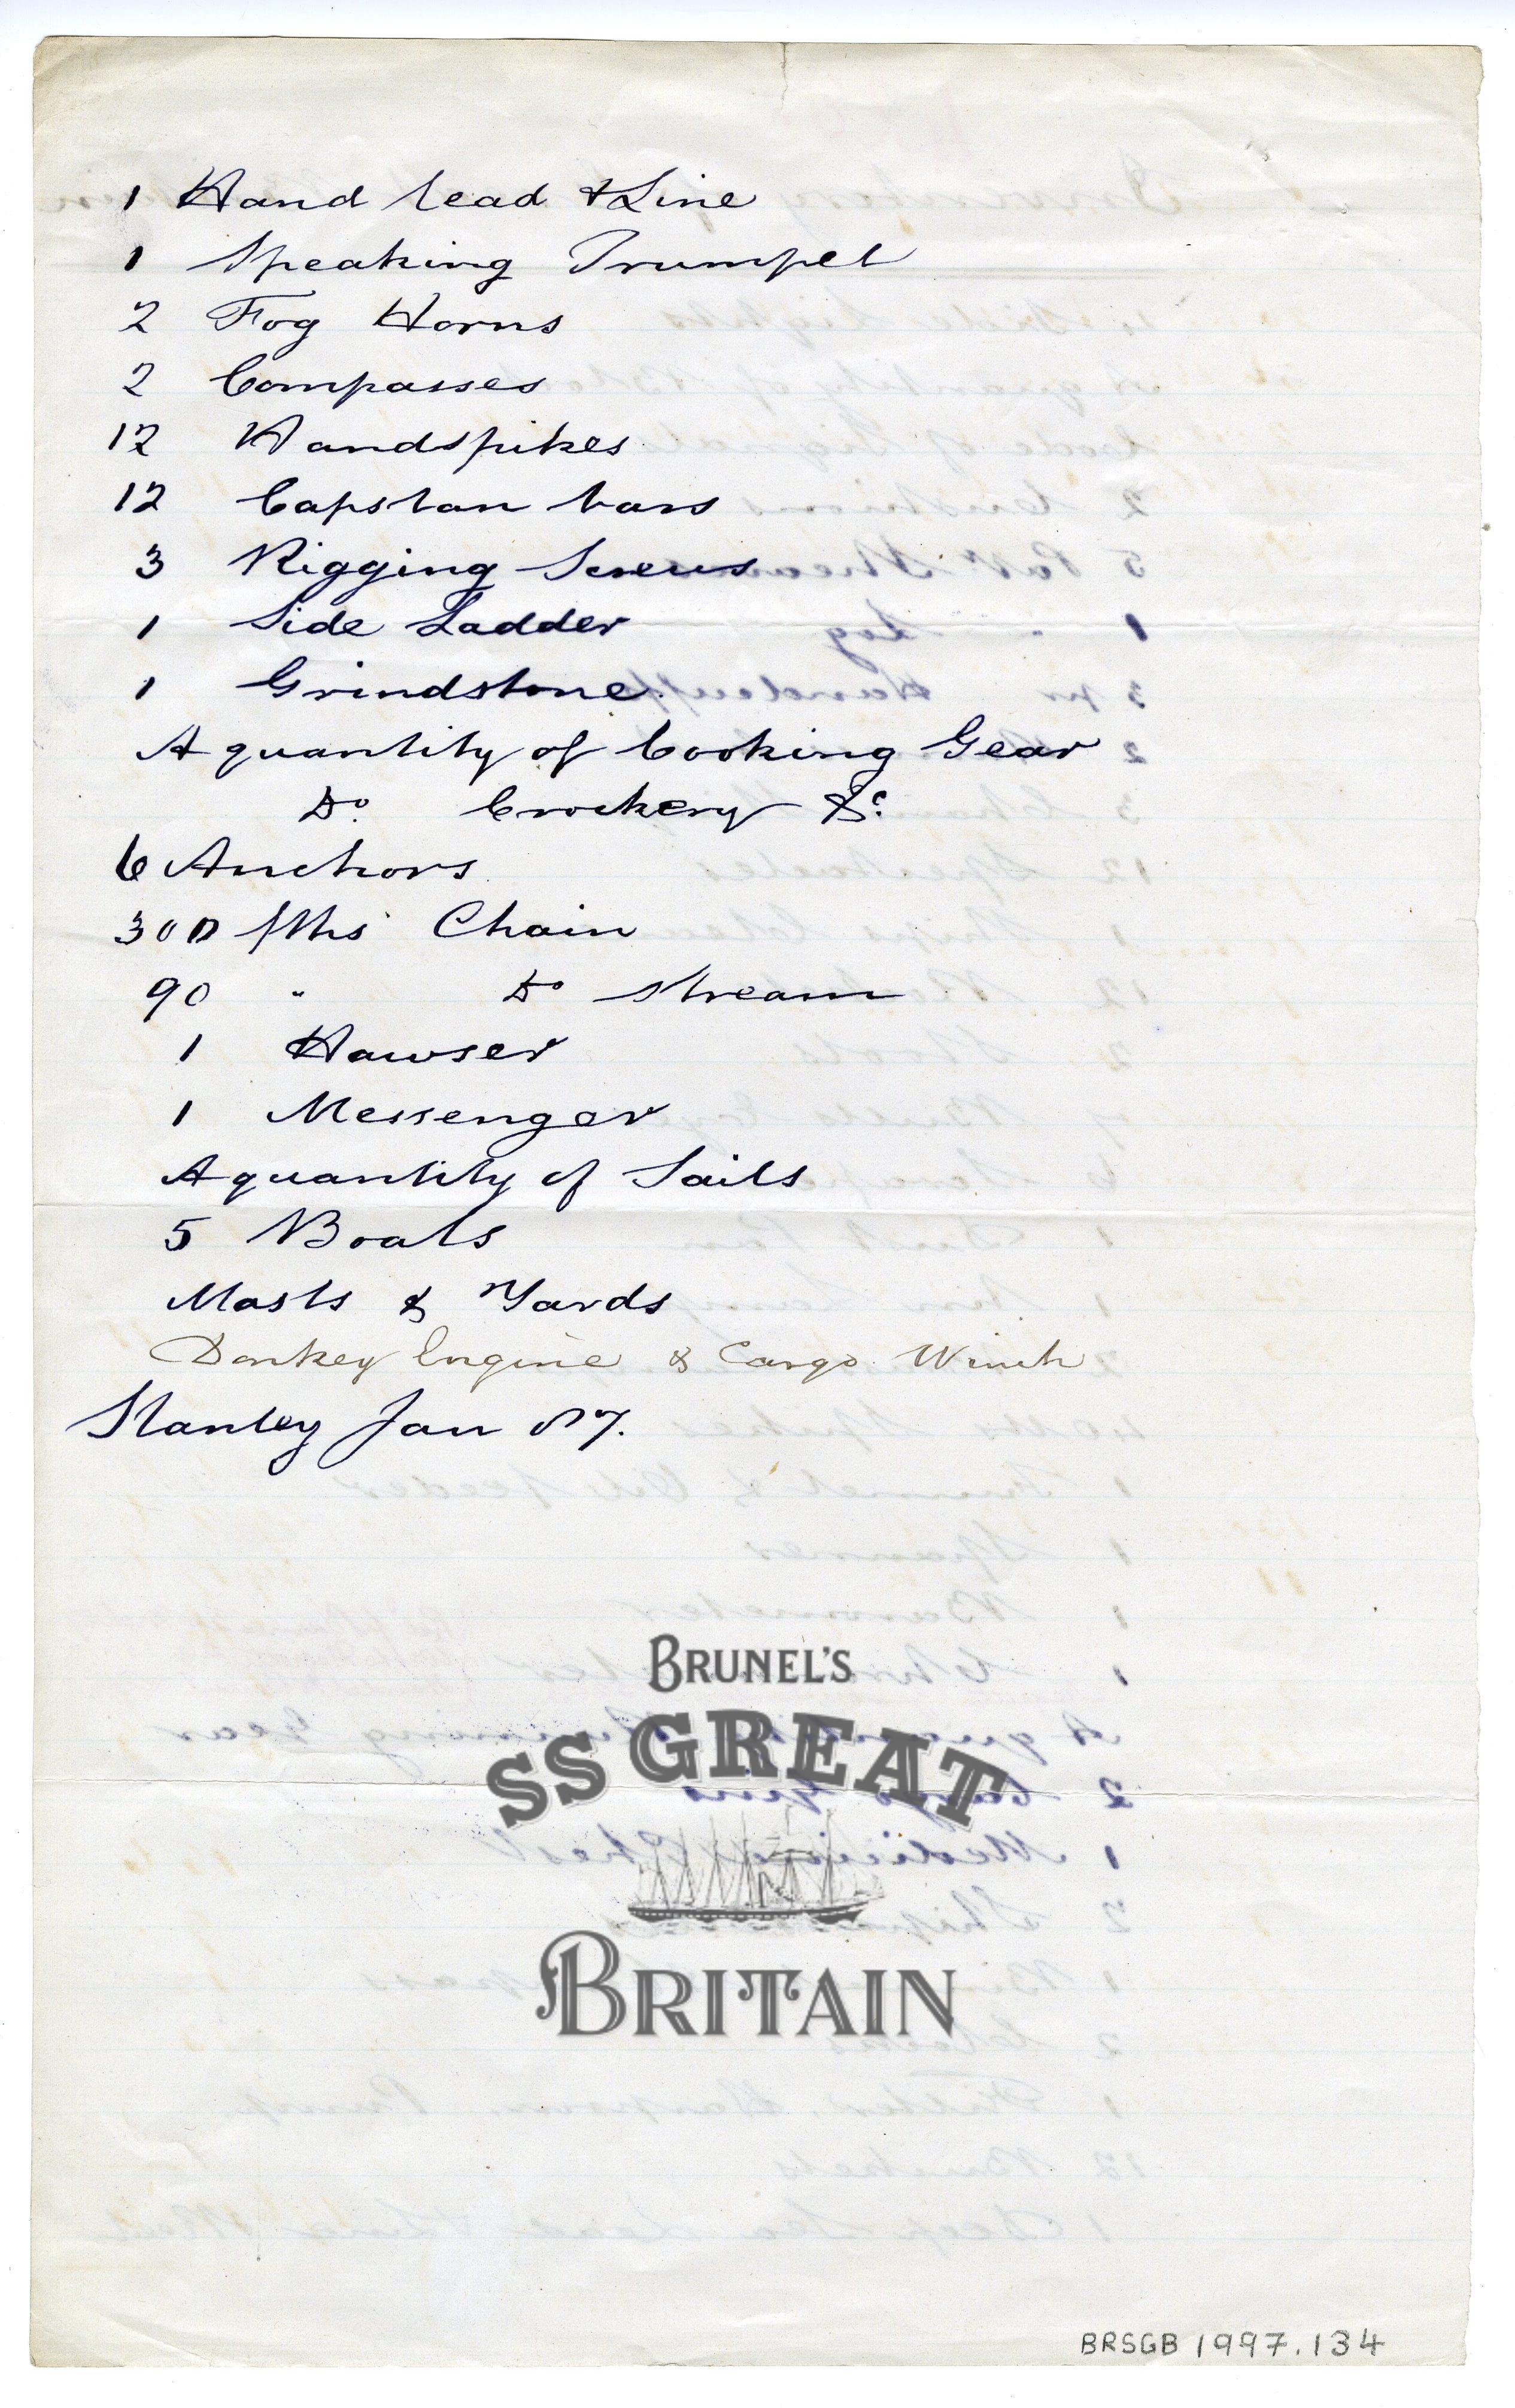 1 Hand lead & Line
1 Speaking Trumpet
2 Fog Horns
2 Compasses
12 Handspikes
12 Capstan bars
3 Rigging Screws
1 Side Ladder
1 Grindstone
A quantity of Cooking Gear
Do. Crockery &c.
6 Anchors
300 fths Chain
90 " Do stream
1 Hawser
1 Messenger
A quantity of Sails
5 Boats
Masts & Yards
Donkey Engine & Cargo Winch
Stanley Jan 87.
BRUNEL'S
SS GREAT
BRITAIN
BRSGB 1997.134